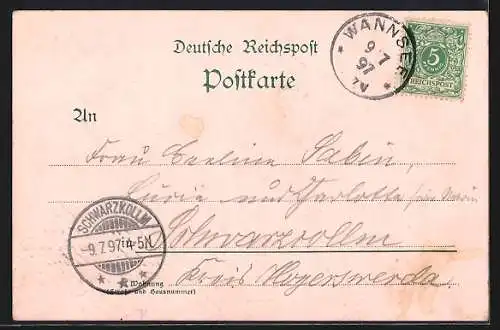 Deutsche Reichspost
Postkarte
WANNSEE
9 7
97
7N
5
PFENNIG
REICHSPOST
An
Frau
Sabin,
und Charlotte
SCHWARZKOLLM
9.7.97 4-5N
in Schwarzcollm
Kreis Hoyerswerda
Wohnung
(Straße und Hausnummer)